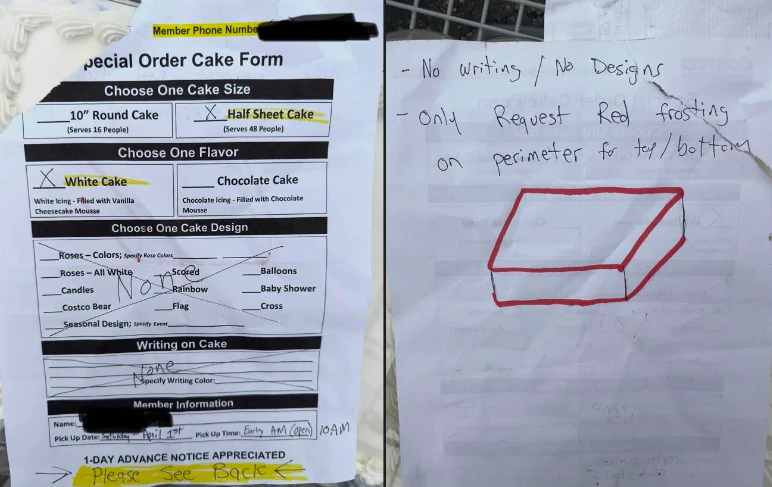 Member Phone Numbe
pecial Order Cake Form
Choose One Cake Size
___10" Round Cake
(Serves 16 People)
X Half Sheet Cake
(Serves 48 People)
Choose One Flavor
X White Cake
White Icing - Filled with Vanilla
Cheesecake Mousse
___ Chocolate Cake
Chocolate Icing - Filled with Chocolate
Mousse
Choose One Cake Design
___Roses – Colors; Specify Rose Colors
___Roses – All White
___Scored
___Balloons
___Candles
None
___Rainbow
___Baby Shower
___Costco Bear
___Flag
___Cross
___Seasonal Design; Specify Event
Writing on Cake
None
Specify Writing Color:
Member Information
Name:
Pick Up Date: Saturday - April 1st Pick Up Time: Early AM (open) 10AM
1-DAY ADVANCE NOTICE APPRECIATED
→ Please See Back ←
- No writing / No Designs
- Only Request Red frosting
on perimeter for top/bottom